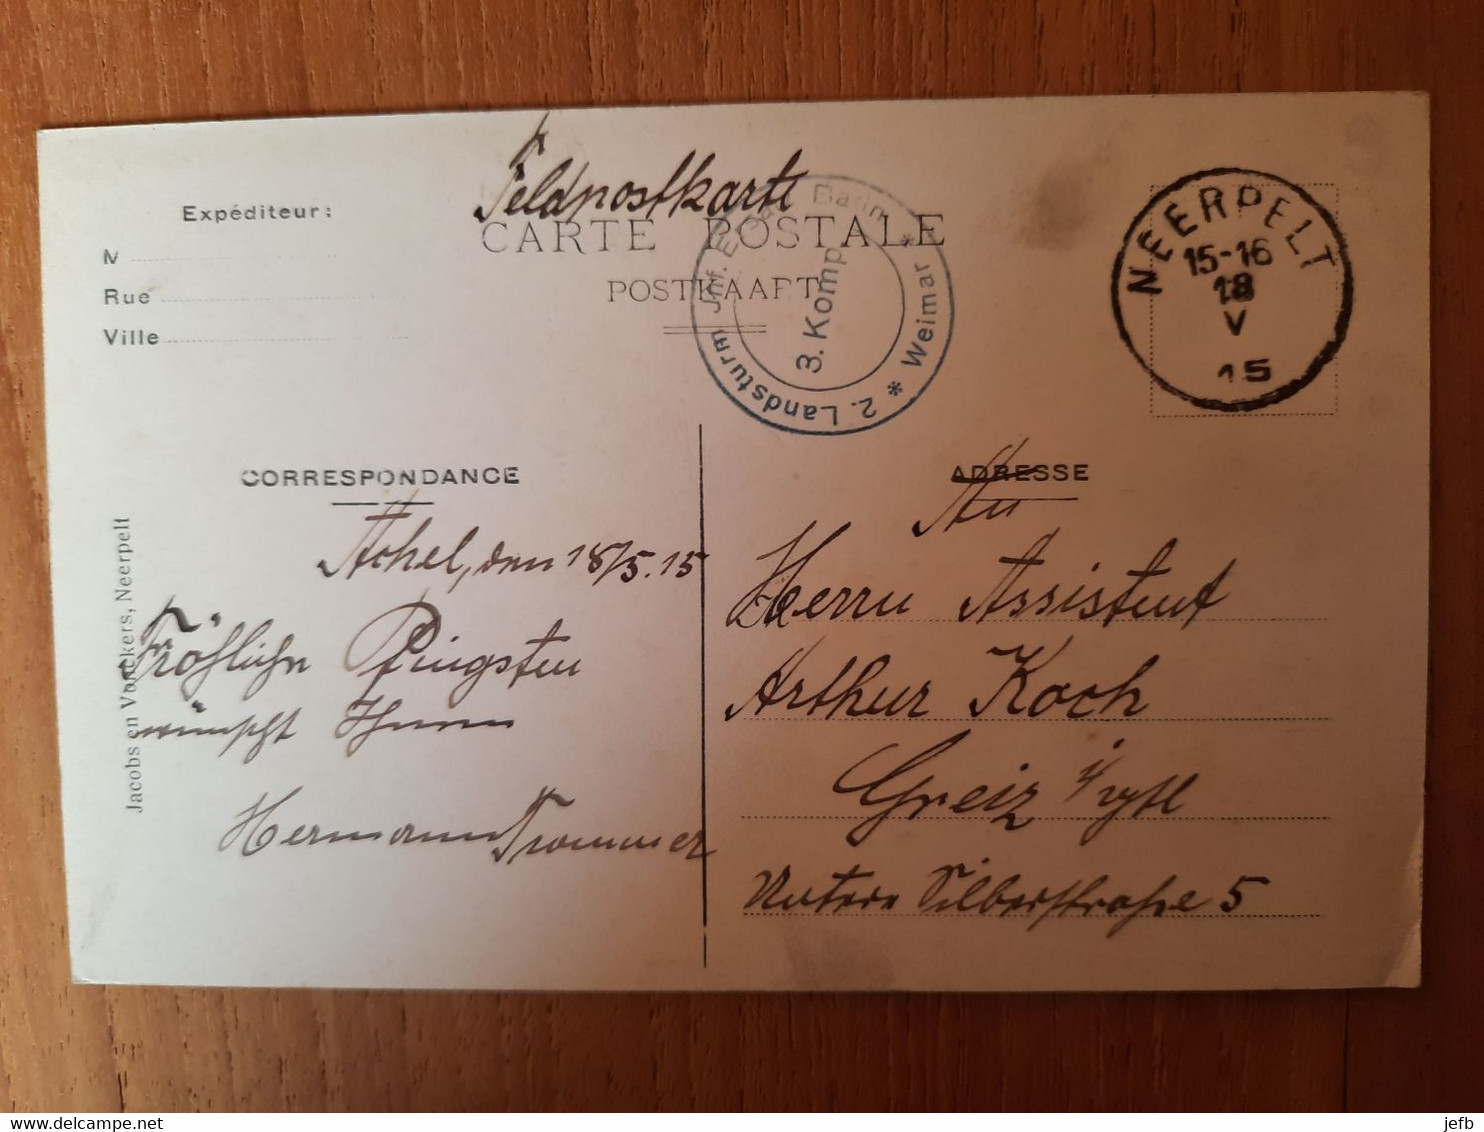 Expéditeur :
M
Rue
Ville
Feldpostkarte
CARTE POSTALE
POSTKAART
2. Landsturm Inf. Ers. Batln. * Weimar *
3. Komp.
NEERPELT
15-16
18
V
15
CORRESPONDANCE
Achel, den 18/5.15
Fröhliche Pfingsten
wünscht Ihnen
Hermann Trommer
Jacobs en Vonckers, Neerpelt
ADRESSE
An
Herrn Assistent
Arthur Koch
Greiz i/Vgtl
Untere Silberstraße 5
www.delcampe.net
jefb